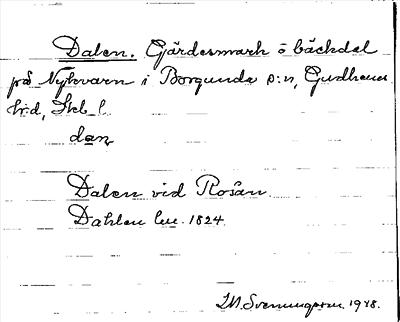 Dalen. Gärdesmark o bäckdal
på Nykvarn i Borgunda s:n, Gudhems
h:d, Skb. l.
dan,
Dalen vid Rosån
Dahlen lm. 1824.
I.M. Svennungsson. 1948.